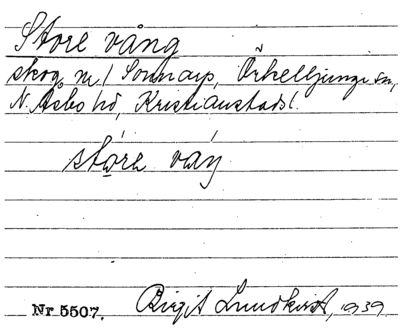 Store vång
skog nr 1 Sonnarp, Örkelljunga sn,
N. Åsbo hd, Kristianstads l.
store våŋ
Nr 5507. Birgit Lundkvist, 1939